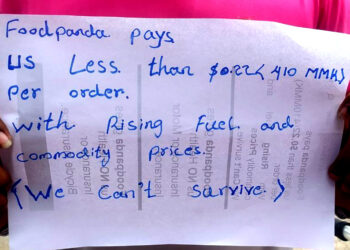 Foodpanda pays
us Less than $0.22 (410 MMK)
Per order.
With Rising Fuel and
commodity prices.
(We Can't Survive.)